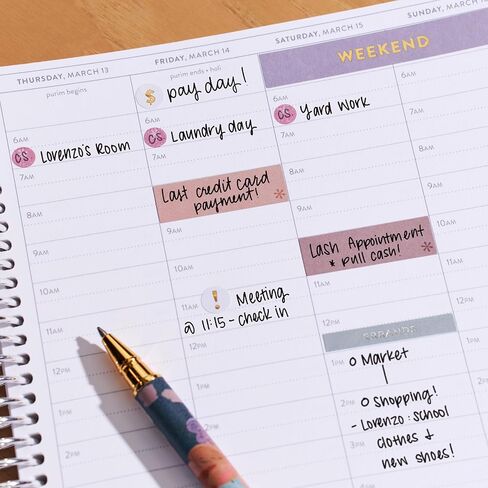 THURSDAY, MARCH 13
purim begins
6AM
CS
Lorenzo's Room
7AM
8AM
9AM
10AM
11AM
12PM
1PM
2PM
FRIDAY, MARCH 14
purim ends • holi
$ pay day!
6AM
CS
Laundry day
7AM
8AM
Last credit card
payment! *
9AM
10AM
11AM
! Meeting
@ 11:15 - check in
12PM
1PM
SATURDAY, MARCH 15
WEEKEND
6AM
CS
Yard Work
7AM
8AM
9AM
Lash Appointment
* pull cash! *
10AM
11AM
12PM
ERRANDS
1PM
O Market
2PM
O Shopping!
- Lorenzo: school
clothes +
new shoes!
3PM
SUNDAY, MARCH